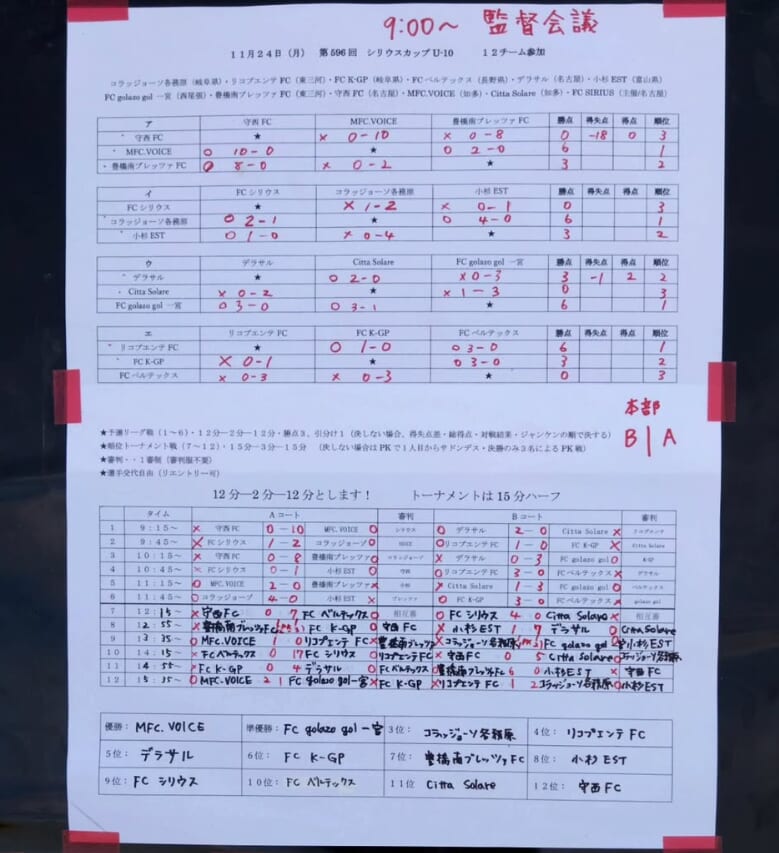 9:00～ 監督会議
11月24日（月） 第596回 シリウスカップ U-10 12チーム参加
コラッジョーソ各務原（岐阜県）・リコプエンテFC（東三河）・FC K-GP（岐阜県）・FCベルテックス（長野県）・デラサル（名古屋）・小杉EST（富山県）
FC golazo gol 一宮（西尾張）・豊橋南プレッツァFC（東三河）・守西FC（名古屋）・MFC.VOICE（知多）・Citta Solare（知多）・FC SIRIUS（主催/名古屋）
ア 守西FC MFC.VOICE 豊橋南プレッツァFC 勝点 得失点 得点 順位
守西FC ★ × 0-10 × 0-8 0 -18 0 3
MFC.VOICE ○ 10-0 ★ ○ 2-0 6 1
豊橋南プレッツァFC ○ 8-0 × 0-2 ★ 3 2
イ FCシリウス コラッジョーソ各務原 小杉EST 勝点 得失点 得点 順位
FCシリウス ★ × 1-2 × 0-1 0 3
コラッジョーソ各務原 ○ 2-1 ★ ○ 4-0 6 1
小杉EST ○ 1-0 × 0-4 ★ 3 2
ウ デラサル Citta Solare FC golazo gol 一宮 勝点 得失点 得点 順位
デラサル ★ ○ 2-0 × 0-3 3 -1 2 2
Citta Solare × 0-2 ★ × 1-3 0 3
FC golazo gol 一宮 ○ 3-0 ○ 3-1 ★ 6 1
エ リコプエンテFC FC K-GP FCベルテックス 勝点 得失点 得点 順位
リコプエンテFC ★ ○ 1-0 ○ 3-0 6 1
FC K-GP × 0-1 ★ ○ 3-0 3 2
FCベルテックス × 0-3 × 0-3 ★ 0 3
本部
B | A
★予選リーグ戦（1～6）・12分―2分―12分・勝点3、引分け1（決しない場合、得失点差・総得点・対戦結果・ジャンケンの順で決する）
★順位トーナメント戦（7～12）・15分―3分―15分 （決しない場合はPKで1人目からサドンデス・決勝のみ3名によるPK戦）
★審判・・1審制（審判服不要）
★選手交代自由（リエントリー可）
12分―2分―12分とします！ トーナメントは15分ハーフ
タイム Aコート 審判 Bコート 審判
1 9:15～ × 守西FC 0-10 MFC.VOICE ○ シリウス ○ デラサル 2-0 Citta Solare × リコプエンテ
2 9:45～ × FCシリウス 1-2 コラッジョーソ ○ VOICE ○ リコプエンテFC 1-0 FC K-GP × Citta Solare
3 10:15～ × 守西FC 0-8 豊橋南プレッツァ ○ コラッジョーソ × デラサル 0-3 FC golazo gol ○ K-GP
4 10:45～ × FCシリウス 0-1 小杉EST ○ 守西 ○ リコプエンテFC 3-0 FCベルテックス × デラサル
5 11:15～ ○ MFC.VOICE 2-0 豊橋南プレッツァ × 小杉 × Citta Solare 1-3 FC golazo gol ○ ベルテックス
6 11:45～ ○ コラッジョーソ 4-0 小杉EST × プレッツァ ○ FC K-GP 3-0 FCベルテックス × golazo gol
7 12:15～ × 守西FC 0 7 FC ベルテックス ○ 相互審 ○ FC シリウス 4 0 Citta Solare × 相互審
8 12:55～ × 豊橋南プレッツァFC FC K-GP ○ 守西FC × 小杉EST 1 7 デラサル ○ Citta Solare
9 13:35～ ○ MFC.VOICE 1 0 リコプエンテFC × 豊橋南プレッツァ × コラッジョーソ各務原 FC golazo gol 一宮 ○ 小杉EST
10 14:15～ × FCベルテックス 0 17 FC シリウス ○ リコプエンテFC × 守西FC 0 5 Citta Solare ○ コラッジョーソ各務原
11 14:55～ × FC K-GP 0 4 デラサル ○ FCベルテックス ○ 豊橋南プレッツァFC 6 0 小杉EST × 守西FC
12 15:35～ ○ MFC.VOICE 2 1 FC golazo gol 一宮 × FC K-GP × リコプエンテFC 1 2 コラッジョーソ各務原 ○ 小杉EST
優勝： MFC.VOICE 準優勝： FC golazo gol 一宮 3位： コラッジョーソ各務原 4位： リコプエンテFC
5位： デラサル 6位： FC K-GP 7位： 豊橋南プレッツァFC 8位： 小杉EST
9位： FC シリウス 10位： FC ベルテックス 11位 Citta Solare 12位： 守西FC